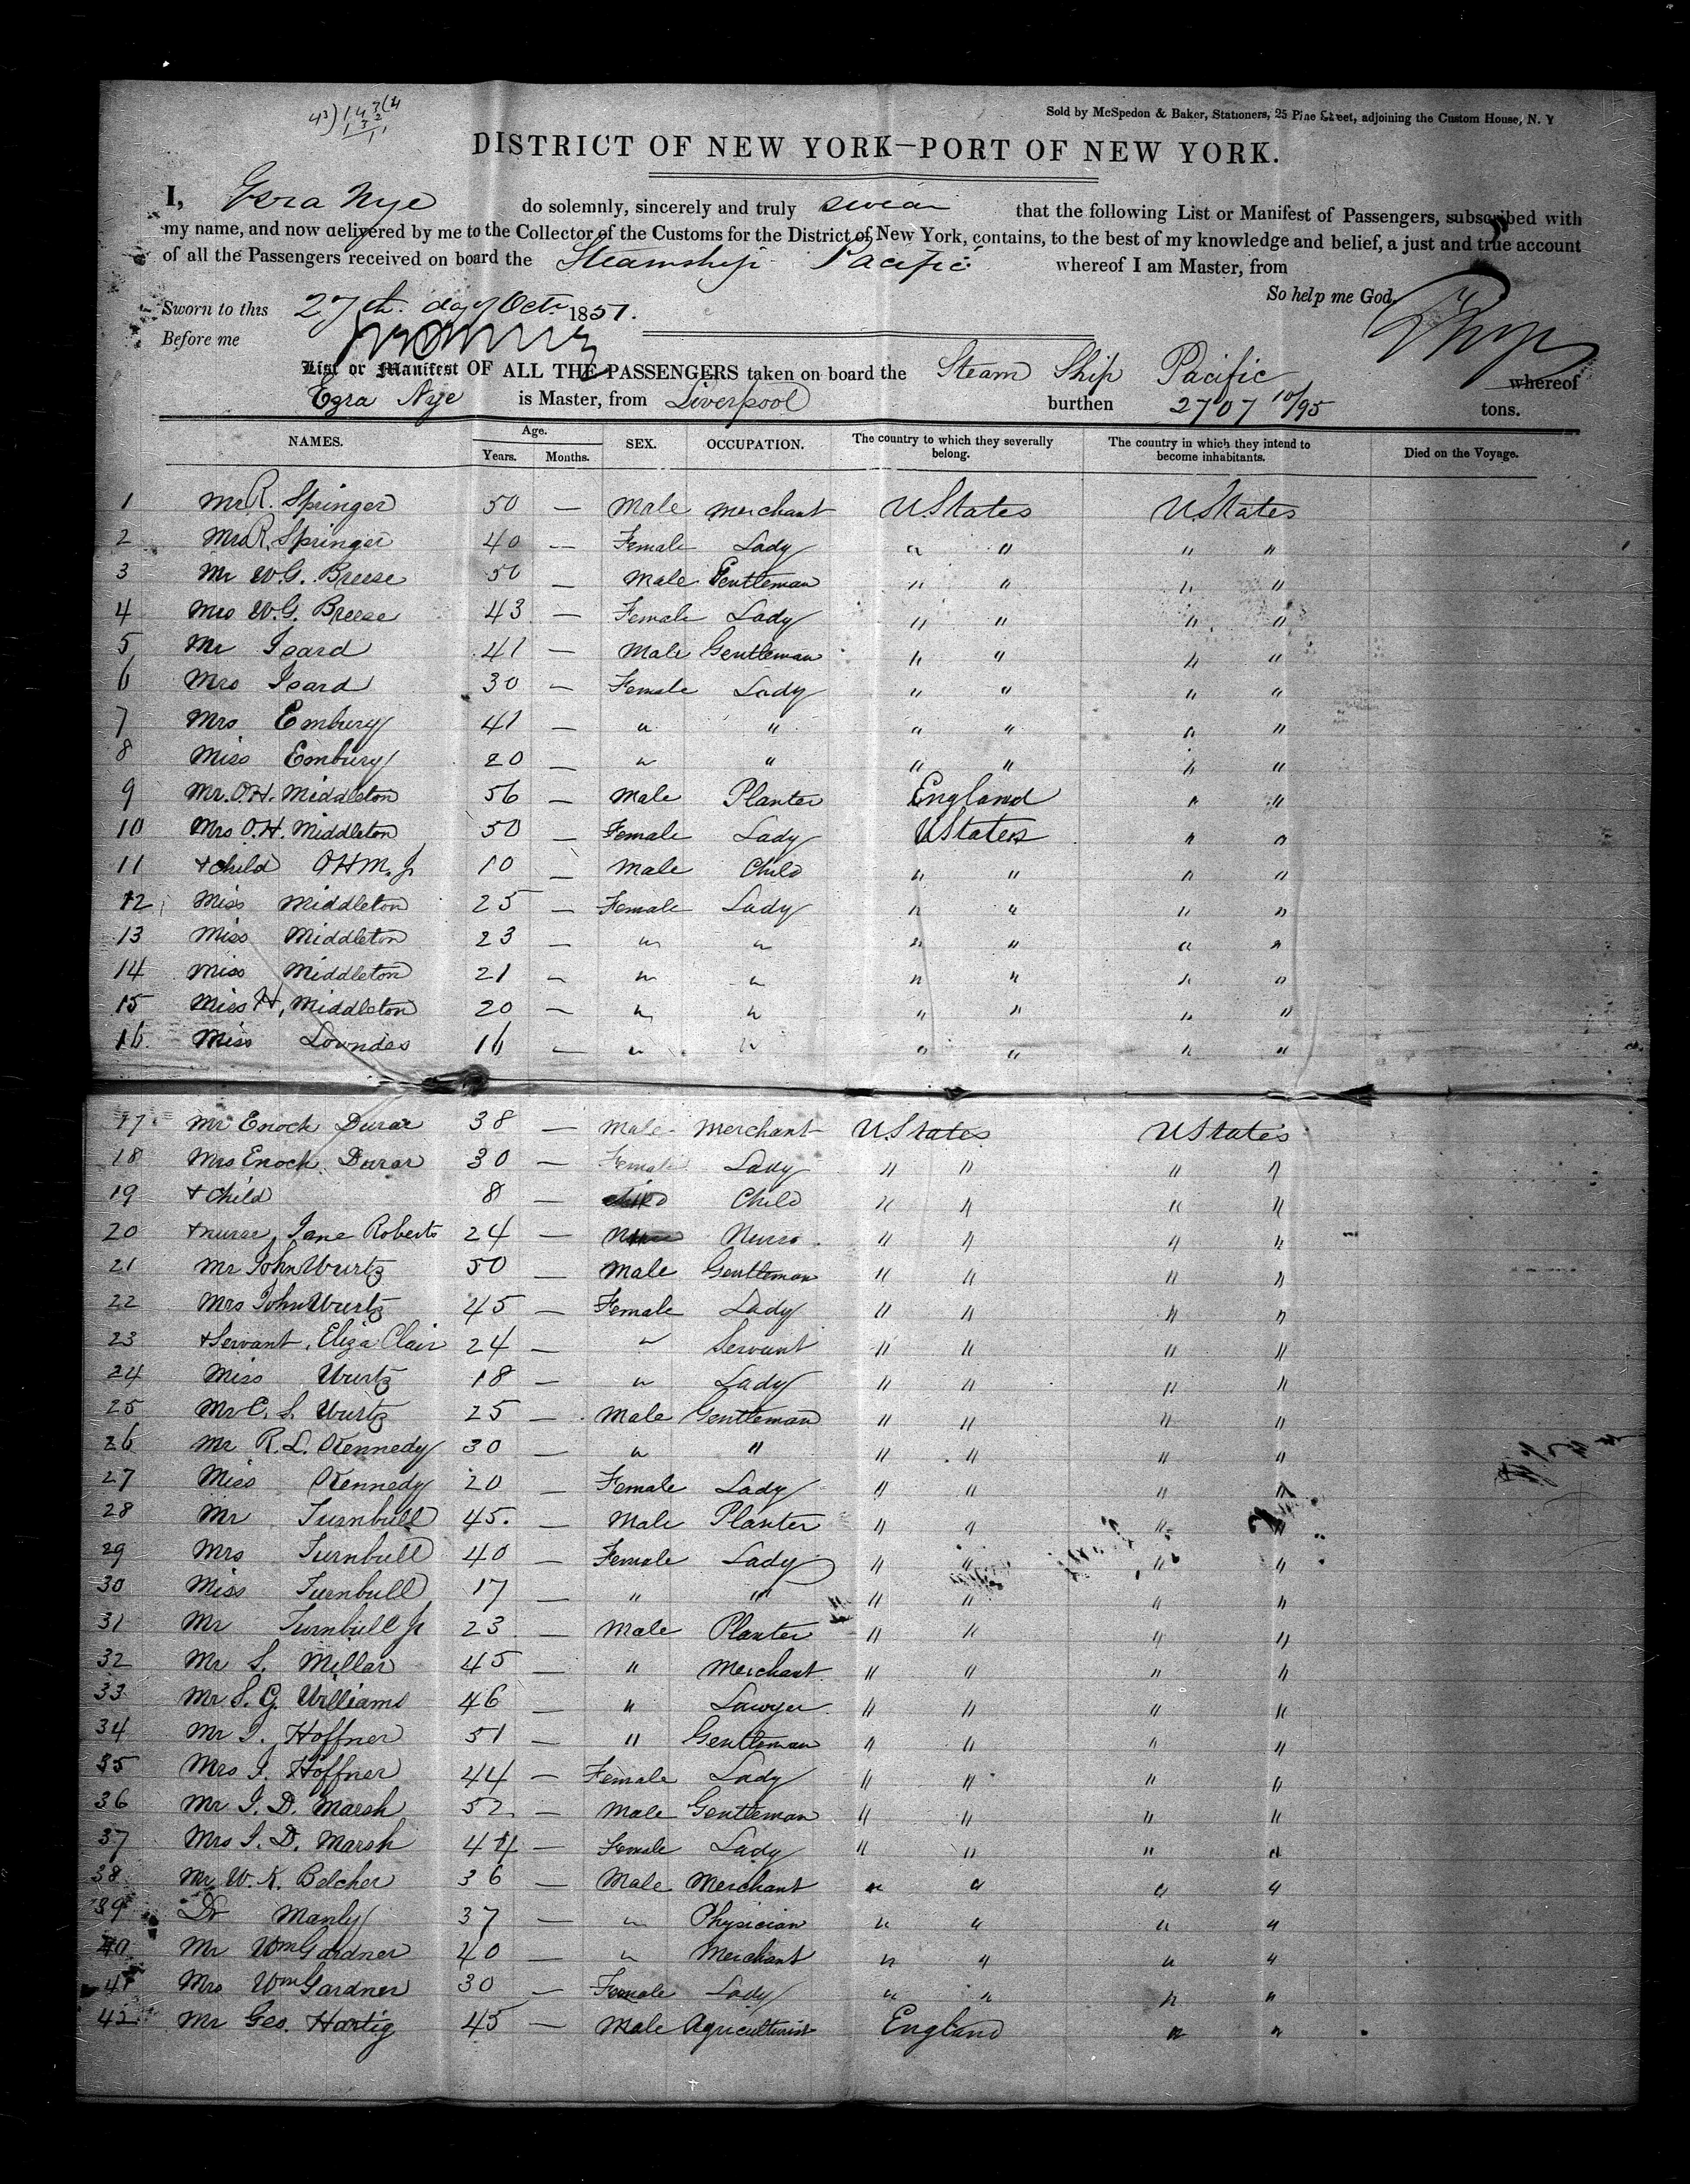 43)143(4
132
Sold by McSpedon & Baker, Stationers, 25 Pine Street, adjoining the Custom House, N. Y
DISTRICT OF NEW YORK—PORT OF NEW YORK.
I, Ezra Nye do solemnly, sincerely and truly swear that the following List or Manifest of Passengers, subscribed with
my name, and now delivered by me to the Collector of the Customs for the District of New York, contains, to the best of my knowledge and belief, a just and true account
of all the Passengers received on board the Steamship Pacific whereof I am Master, from
So help me God.
Sworn to this 27th. day of Oct. 1851.
Before me
List or Manifest OF ALL THE PASSENGERS taken on board the Steam Ship Pacific whereof
Ezra Nye is Master, from Liverpool burthen 2707 10/95 tons.
NAMES. Age. Years. Months. SEX. OCCUPATION. The country to which they severally belong. The country in which they intend to become inhabitants. Died on the Voyage.
1 Mr R. Springer 50 — Male Merchant U.States U.States
2 Mrs R. Springer 40 — Female Lady " " " "
3 Mr W.G. Breese 50 — Male Gentleman " " " "
4 Mrs W.G. Breese 43 — Female Lady " " " "
5 Mr Isard 41 — Male Gentleman " " " "
6 Mrs Isard 30 — Female Lady " " " "
7 Mrs Embury 41 — " " " " " "
8 Miss Embury 20 — " " " " " "
9 Mr. O.H. Middleton 56 — Male Planter England " "
10 Mrs O.H. Middleton 50 — Female Lady UStates " "
11 + child OHM. Jr 10 — Male Child " " " "
12 Miss Middleton 25 — Female Lady " " " "
13 Miss Middleton 23 — " " " " " "
14 Miss Middleton 21 — " " " " " "
15 Miss H, Middleton 20 — " " " " " "
16. Miss Lowndes 16 — " " " " " "
17 Mr Enoch Durar 38 — Male Merchant U.States UStates
18 Mrs Enoch Durar 30 — Female Lady " " " "
19 + Child 8 — Child " " " "
20 + nurse, Jane Roberts 24 — Nurse " " " "
21 Mr John Wurtz 50 — Male Gentleman " " " "
22 Mrs John Wurtz 45 — Female Lady " " " "
23 + Servant, Eliza Clair 24 — " Servant " " " "
24 Miss Wurtz 18 — " Lady " " " "
25 Mr C. S. Wurtz 25 — Male Gentleman " " " "
26 Mr R. L. Kennedy 30 — " " " " " "
27 Miss Kennedy 20 — Female Lady " " " "
28 Mr Turnbull 45. — Male Planter " " " "
29 Mrs Turnbull 40 — Female Lady " " " "
30 Miss Turnbull 17 — " " " " " "
31 Mr Turnbull Jr 23 — Male Planter " " " "
32 Mr S. Millar 45 — " Merchant " " " "
33 Mr S. G. Williams 46 — " Lawyer " " " "
34 Mr I. Hoffner 51 — " Gentleman " " " "
35 Mrs I. Hoffner 44 — Female Lady " " " "
36 Mr I. D. Marsh 52 — Male Gentleman " " " "
37 Mrs I. D. Marsh 44 — Female Lady " " " "
38 Mr W. K. Belcher 36 — Male Merchant " " " "
39 Dr Manly 37 — " Physician " " " "
40 Mr Wm Gardner 40 — " Merchant " " " "
41 Mrs Wm Gardner 30 — Female Lady " " " "
42 Mr Geo. Hartig 45 — Male Agriculturist England " "